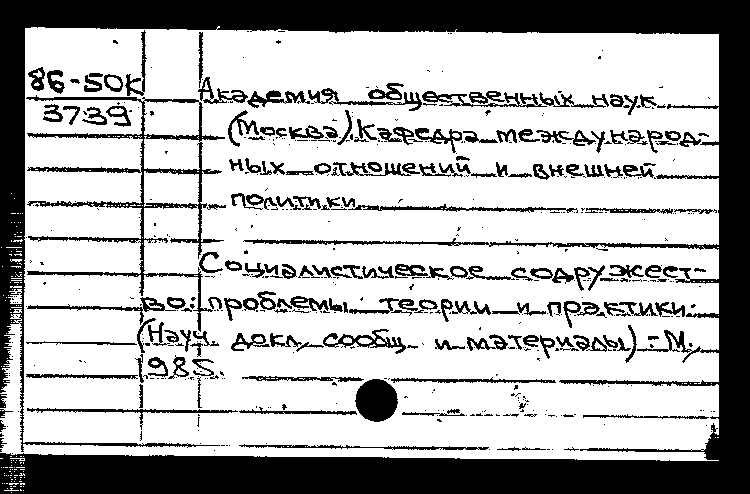 86-50К
3739
Академия общественных наук
(Москва). Кафедра международ-
ных отношений и внешней
политики.
Социалистическое содружест-
во: проблемы теории и практики.
(Науч. докл, сообщ. и материалы) - М.,
1985.